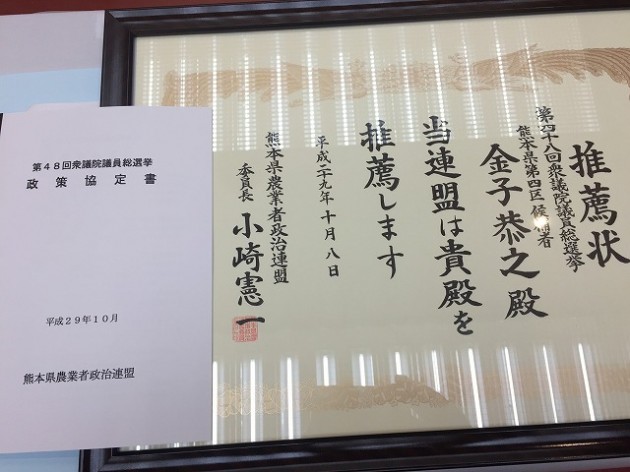 第４８回衆議院議員総選挙
政策協定書
平成２９年１０月
熊本県農業者政治連盟
推薦状
第四十八回衆議院議員総選挙
熊本県第四区候補者
金子恭之殿
当連盟は貴殿を
推薦します
平成二九年十月八日
熊本県農業者政治連盟
委員長 小崎憲一